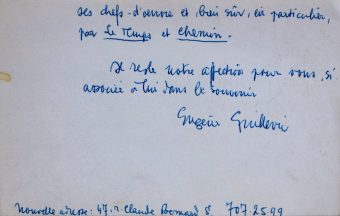 ses chefs-d'œuvre et, bien sûr, en particulier,
par Le Temps et Chemin.
Il reste notre affection pour vous, si
associée à lui dans le souvenir
Eugène Guillevic
Nouvelle adresse : 47, r. Claude Bernard 5. 707.25.99